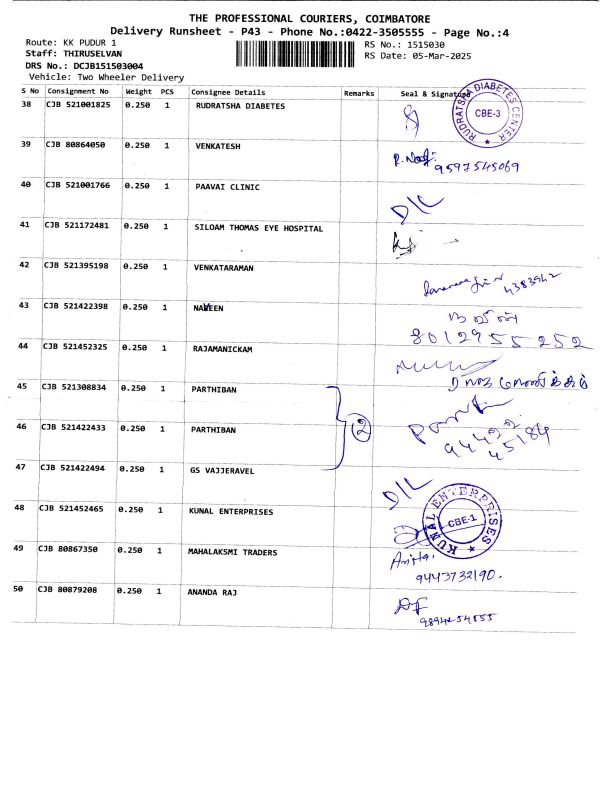 THE PROFESSIONAL COURIERS, COIMBATORE
Delivery Runsheet - P43 - Phone No.:0422-3505555 - Page No.:4
Route: KK PUDUR 1
RS No.: 1515030
Staff: THIRUSELVAN
RS Date: 05-Mar-2025
DRS No.: DCJB151503004
Vehicle: Two Wheeler Delivery
S No Consignment No Weight PCS Consignee Details Remarks Seal & Signature
38 CJB 521001825 0.250 1 RUDRATSHA DIABETES
RUDRATSHA DIABETES CENTER CBE-3
39 CJB 80864050 0.250 1 VENKATESH
9597545069
40 CJB 521001766 0.250 1 PAAVAI CLINIC D/L
41 CJB 521172481 0.250 1 SILOAM THOMAS EYE HOSPITAL
42 CJB 521395198 0.250 1 VENKATARAMAN
4383942
43 CJB 521422398 0.250 1 NAVEEN நவீன்
8012955252
44 CJB 521452325 0.250 1 RAJAMANICKAM
45 CJB 521308834 0.250 1 PARTHIBAN
2
46 CJB 521422433 0.250 1 PARTHIBAN
45184
47 CJB 521422494 0.250 1 GS VAJJERAVEL D/L
48 CJB 521452465 0.250 1 KUNAL ENTERPRISES
KUNAL ENTERPRISES CBE-1
49 CJB 80867350 0.250 1 MAHALAKSMI TRADERS
9443732190.
50 CJB 80879208 0.250 1 ANANDA RAJ